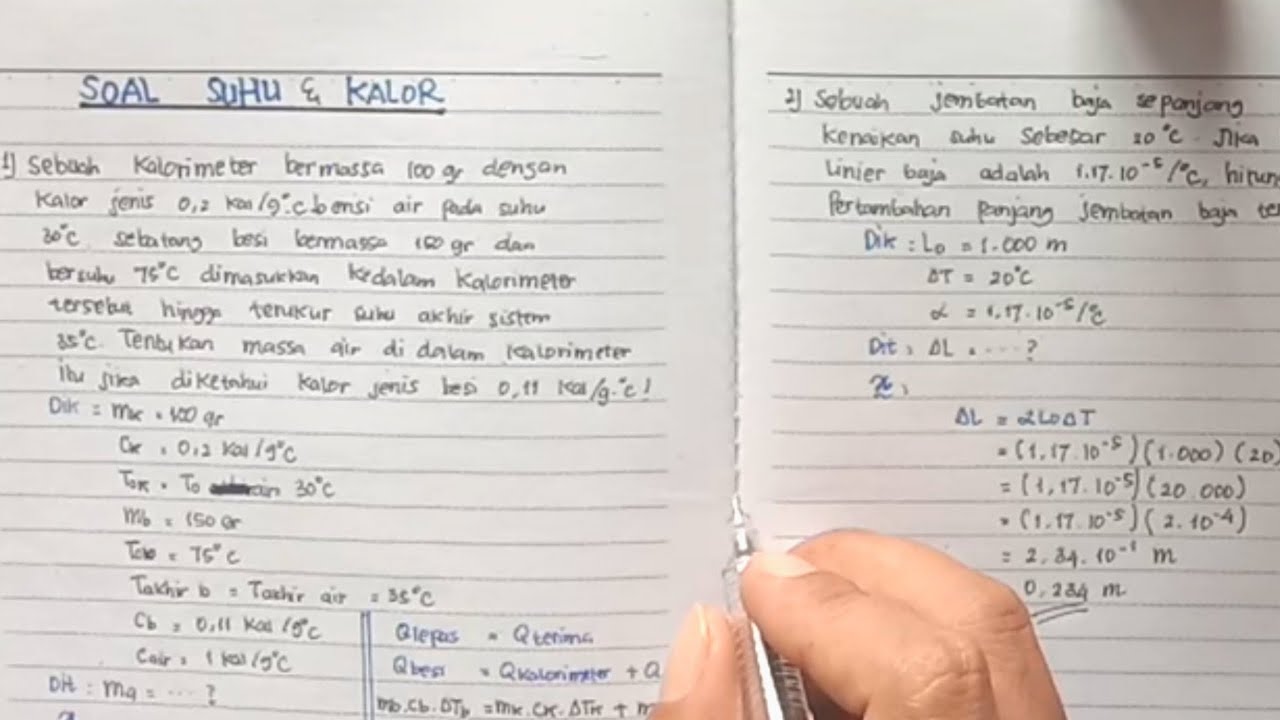 SOAL SUHU & KALOR
1) Sebuah Kalorimeter bermassa 100 gr dengan
Kalor jenis 0,2 Kal/g°.c berisi air pada suhu
30°C. sebatang besi bermassa 150 gr dan
bersuhu 75°C dimasukkan kedalam Kalorimeter
tersebut hingga terukur suhu akhir sistem
35°C. Tentukan massa air di dalam Kalorimeter
itu jika diketahui kalor jenis besi 0,11 Kal/g.°c!
Dik = mk = 100 gr
Ck = 0,2 Kal/g°C
Tok = To 30°C
Mb = 150 gr
Tob = 75°C
Takhir b = Takhir air = 35°C
Cb = 0,11 Kal/g°C
Cair = 1 Kal/g°C
Dit : Ma = .... ?
Qlepas = Qterima
Qbesi = Qkalorimeter + Q
mb.cb.ΔTb = mk.ck.ΔTk + m
2) Sebuah jembatan baja sepanjang
kenaikan suhu sebesar 20°C. Jika
linier baja adalah 1.17.10⁻⁵/°C, hitun
Pertambahan panjang jembatan baja ter
Dik : Lo = 1.000 m
ΔT = 20°C
α = 1,17.10⁻⁵/°C
Dit : ΔL = .... ?
ΔL = αLoΔT
= (1,17.10⁻⁵)(1.000)(20)
= (1,17.10⁻⁵)(20.000)
= (1,17.10⁻⁵)(2.10⁻⁴)
= 2,34.10⁻¹ m
0,234 m